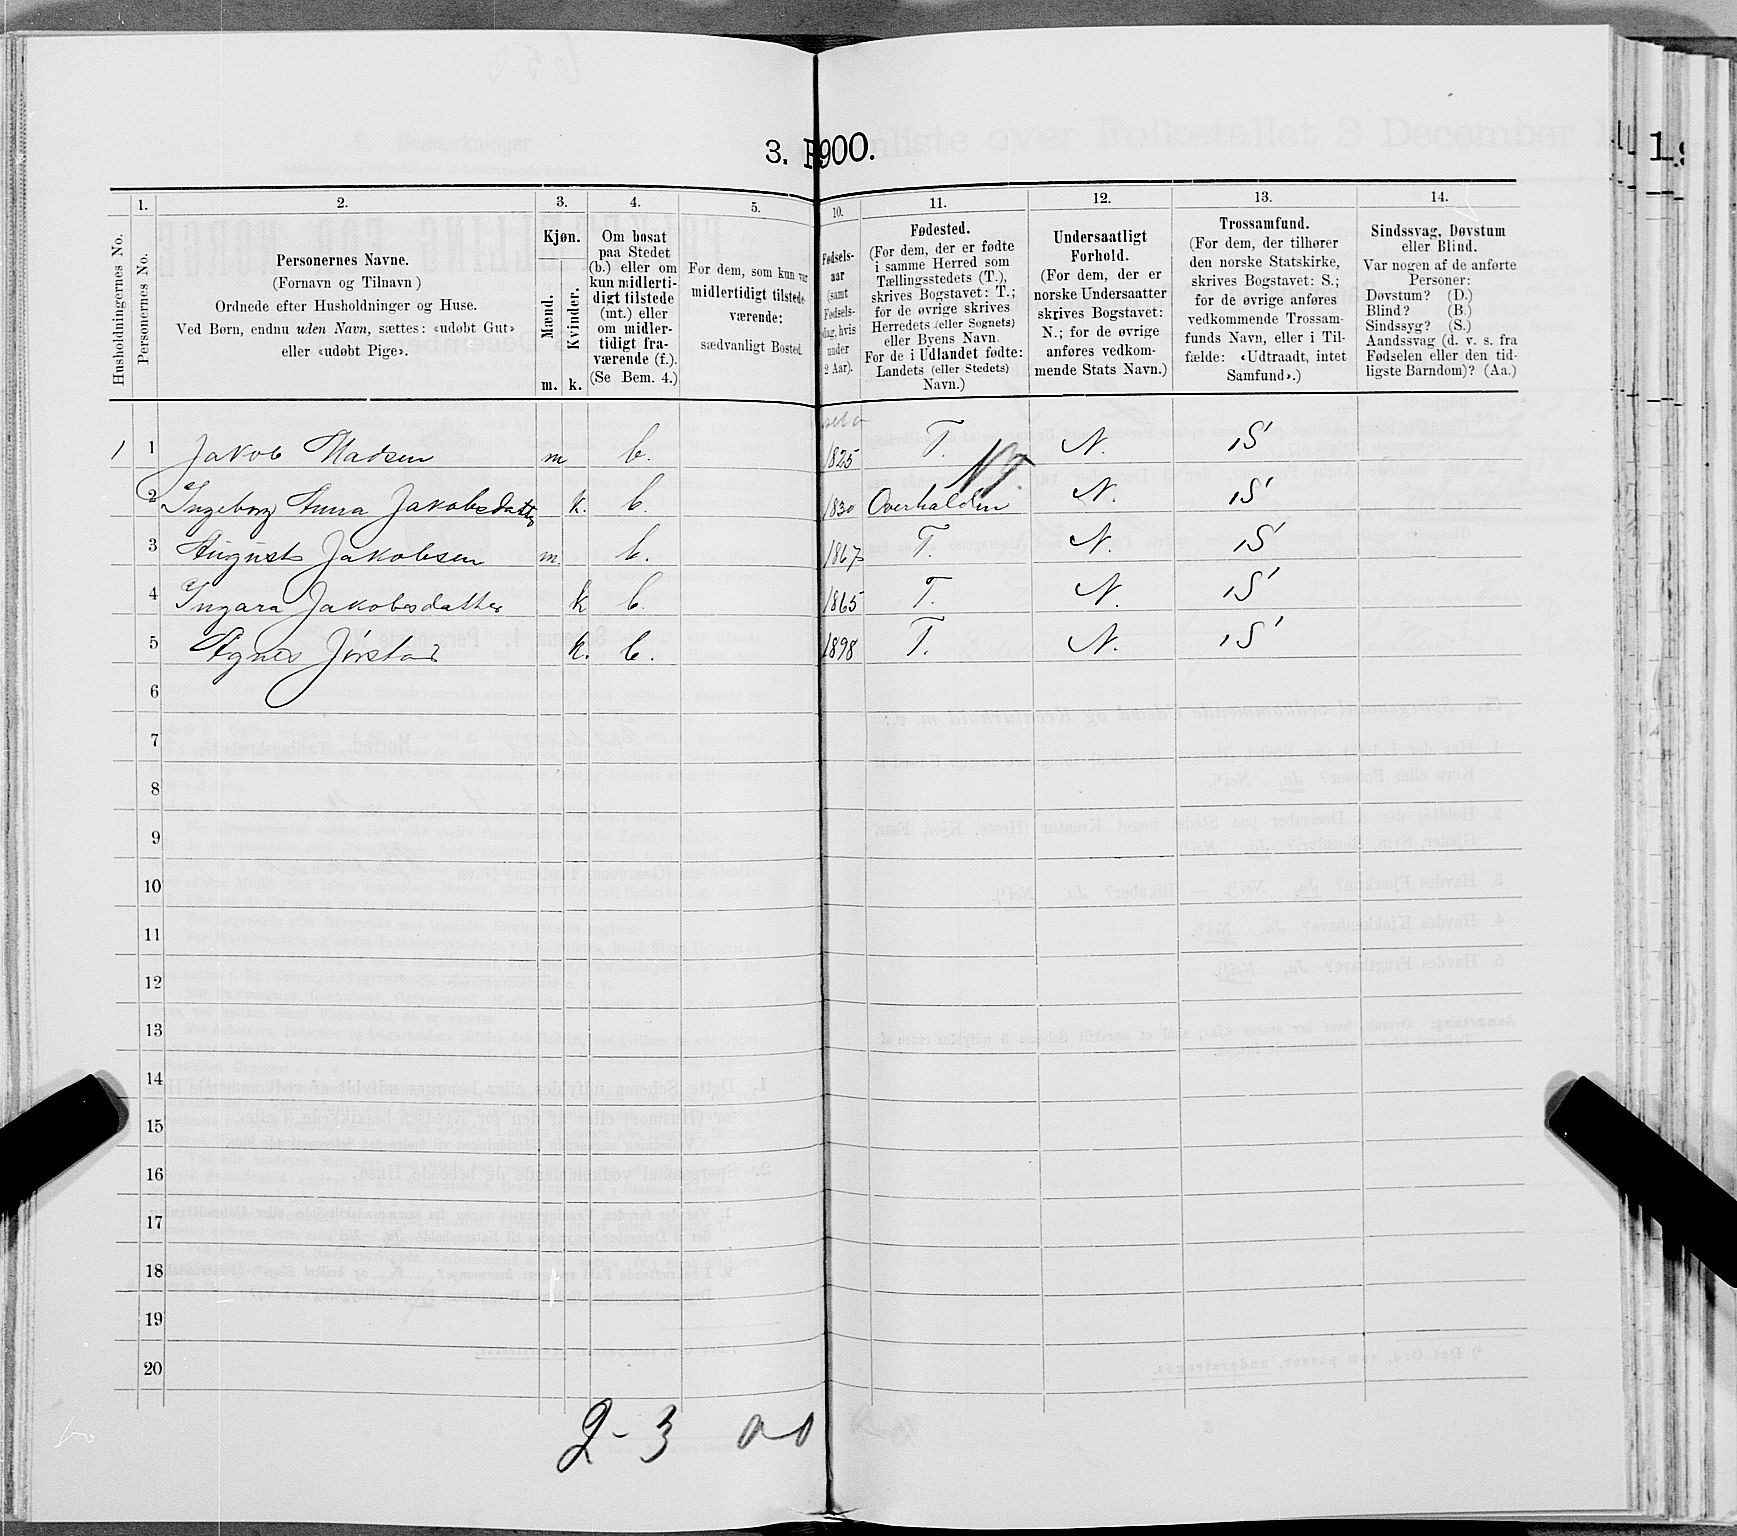 3. 1900.
1. 2. 3. 4. 5. 10. 11. 12. 13. 14.
Husholdningernes No.
Personernes No.
Personernes Navne.
(Fornavn og Tilnavn)
Ordnede efter Husholdninger og Huse.
Ved Børn, endnu uden Navn, sættes: «udøbt Gut»
eller «udøbt Pige».
Kjøn.
Mænd.
Kvinder.
m. k.
Om bosat
paa Stedet
(b.) eller om
kun midlerti-
digt tilstede
(mt.) eller
om midler-
tidigt fra-
værende (f.).
(Se Bem. 4.)
For dem, som kun var
midlertidigt tilstede-
værende:
sædvanligt Bosted.
Fødsels-
aar
(samt
Fødsels-
dag, hvis
under
2 Aar).
Fødested.
(For dem, der er fødte
i samme Herred som
Tællingsstedets (T.),
skrives Bogstavet: T.;
for de øvrige skrives
Herredets (eller Sognets)
eller Byens Navn.
For de i Udlandet fødte:
Landets (eller Stedets)
Navn.)
Undersaatligt
Forhold.
(For dem, der er
norske Undersaatter
skrives Bogstavet:
N.; for de øvrige
anføres vedkom-
mende Stats Navn.)
Trossamfund.
(For dem, der tilhører
den norske Statskirke,
skrives Bogstavet: S.;
for de øvrige anføres
vedkommende Trossam-
funds Navn, eller i Til-
fælde: «Udtraadt, intet
Samfund».)
Sindssvag, Døvstum
eller Blind.
Var nogen af de anførte
Personer:
Døvstum? (D.)
Blind? (B.)
Sindssyg? (S.)
Aandssvag (d. v. s. fra
Fødselen eller den tid-
ligste Barndom)? (Aa.)
1 1 Jakob Madsen m b. 1825 T. N. S
2 Ingeborg Anna Jakobsdatter k. b. 1830 Overhalden N. S
3 August Jakobsen m. b. 1867 T. N. S
4 Ingara Jakobsdatter k b. 1865 T. N. S
5 Agnes Jørstad k. b. 1898 T. N. S
6
7
8
9
10
11
12
13
14
15
16
17
18
19
20
2-3